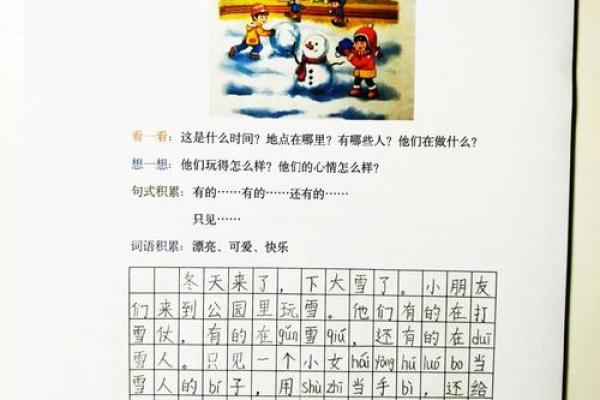 看一看：这是什么时间？地点在哪里？有哪些人？他们在做什么？
想一想：他们玩得怎么样？他们的心情怎么样？
句式积累：有的……有的……还有的……
只见……
词语积累：漂亮、可爱、快乐
冬天来了，下大雪了。小朋友
们来到公园里玩雪。他们有的在打
雪仗，有的在gǔn雪qiú，还有的在duī
雪人。只见一个小女hái yòng hú luó bo当
雪人的bí子，用shù zhī当手bì，还给